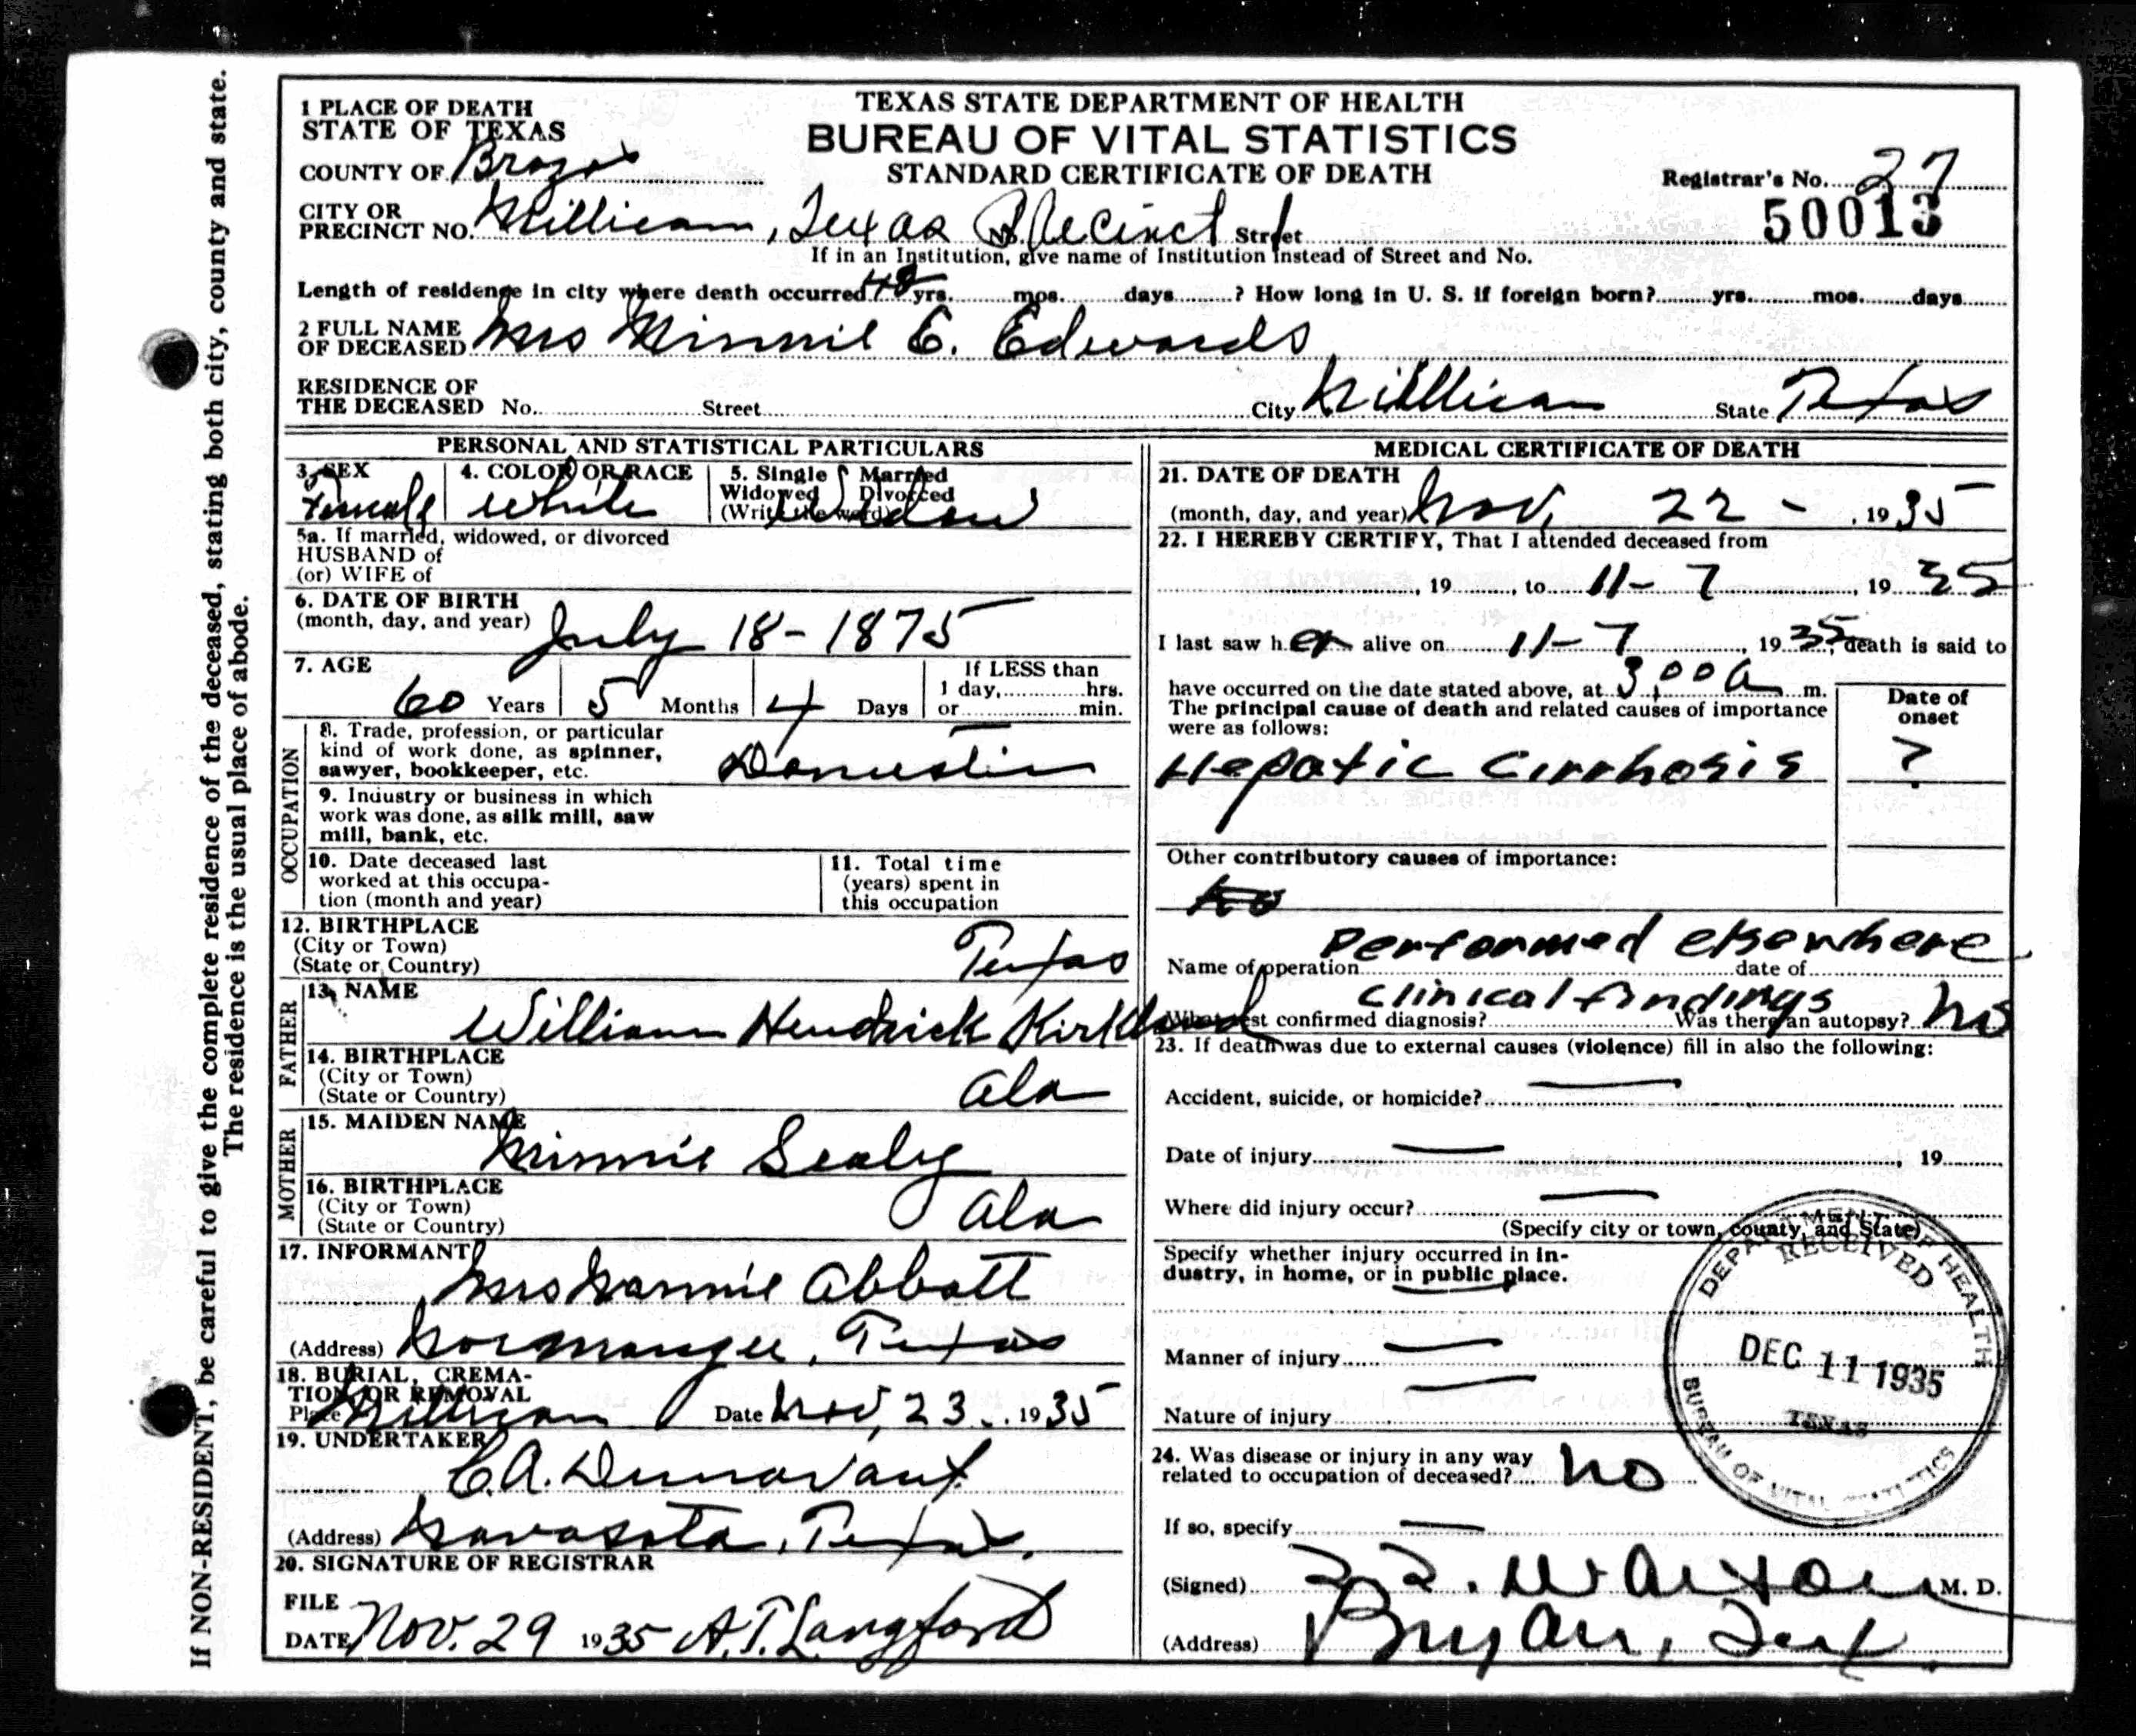 If NON-RESIDENT, be careful to give the complete residence of the deceased, stating both city, county and state.
The residence is the usual place of abode.
1 PLACE OF DEATH
STATE OF TEXAS
COUNTY OF Brazos
CITY OR
PRECINCT NO. Millican, Texas Precinct Street
TEXAS STATE DEPARTMENT OF HEALTH
BUREAU OF VITAL STATISTICS
STANDARD CERTIFICATE OF DEATH
Registrar's No. 27
50013
If in an Institution, give name of Institution instead of Street and No.
Length of residence in city where death occurred 48 yrs. mos. days ? How long in U. S. if foreign born? yrs. mos. days
2 FULL NAME
OF DECEASED Mrs Minnie E. Edwards
RESIDENCE OF
THE DECEASED No. Street City Millican State Texas
PERSONAL AND STATISTICAL PARTICULARS
3. SEX
Female
4. COLOR OR RACE
White
5. Single Married
Widowed Divorced
(Write the word)
Widow
5a. If married, widowed, or divorced
HUSBAND of
(or) WIFE of
6. DATE OF BIRTH
(month, day, and year) July 18-1875
7. AGE
60 Years 5 Months 4 Days
If LESS than
1 day, hrs.
or min.
OCCUPATION
8. Trade, profession, or particular
kind of work done, as spinner,
sawyer, bookkeeper, etc. Domestic
9. Industry or business in which
work was done, as silk mill, saw
mill, bank, etc.
10. Date deceased last
worked at this occupa-
tion (month and year)
11. Total time
(years) spent in
this occupation
12. BIRTHPLACE
(City or Town)
(State or Country) Texas
FATHER
13. NAME
William Hendrick Kirkland
14. BIRTHPLACE
(City or Town)
(State or Country) Ala
MOTHER
15. MAIDEN NAME
Minnie Sealey
16. BIRTHPLACE
(City or Town)
(State or Country) Ala
17. INFORMANT
Mrs Nannie Abbott
(Address) Normangee, Texas
18. BURIAL, CREMA-
TION OR REMOVAL
Place Millican Date Nov, 23, 1935
19. UNDERTAKER
C.A. Dunavant
(Address) Navasota, Texas.
20. SIGNATURE OF REGISTRAR
FILE
DATE Nov. 29 1935 A.T. Langford
MEDICAL CERTIFICATE OF DEATH
21. DATE OF DEATH
(month, day, and year) Nov, 22 - , 1935
22. I HEREBY CERTIFY, That I attended deceased from
, 19 , to 11-7 , 19 35
I last saw her alive on 11-7 , 1935, death is said to
have occurred on the date stated above, at 3,00 A m.
The principal cause of death and related causes of importance
were as follows:
Date of
onset
Hepatic Cirrhosis ?
Other contributory causes of importance:
No
Performed elsewhere
Name of operation date of
Clinical findings
What test confirmed diagnosis? Was there an autopsy? No
23. If death was due to external causes (violence) fill in also the following:
Accident, suicide, or homicide? —
Date of injury — , 19
Where did injury occur? —
(Specify city or town, county, and State)
Specify whether injury occurred in in-
dustry, in home, or in public place.
Manner of injury —
Nature of injury —
24. Was disease or injury in any way
related to occupation of deceased? No
If so, specify —
(Signed) M. D.
(Address) Bryan, Tex.
DEPARTMENT OF HEALTH
RECEIVED
DEC 11 1935
TEXAS
BUREAU OF VITAL STATISTICS